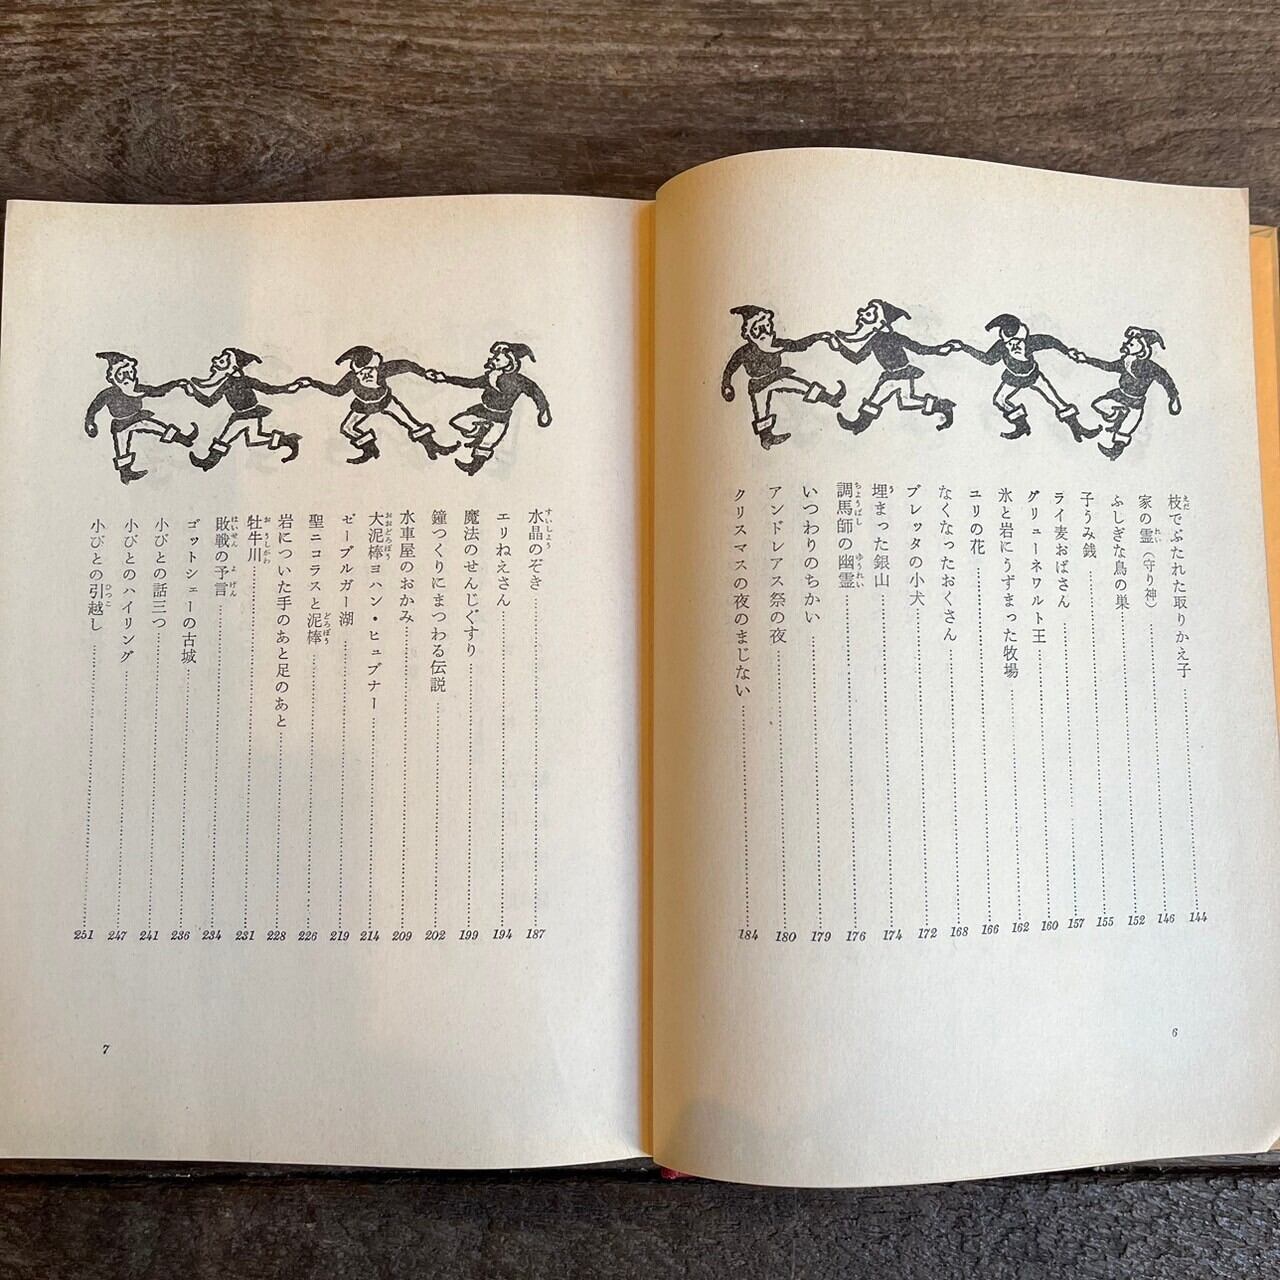 枝でぶたれた取りかえ子 144
家の霊(守り神) 146
ふしぎな鳥の巣 152
子うみ銭 155
ライ麦おばさん 157
グリューネワルト王 160
氷と岩にうずまった牧場 162
ユリの花 166
なくなったおくさん 168
ブレッタの小犬 172
埋まった銀山 174
調馬師の幽霊 176
いつわりのちかい 179
アンドレアス祭の夜 180
クリスマスの夜のまじない 184
6
水晶のぞき 187
エリねえさん 194
魔法のせんじぐすり 199
鐘つくりにまつわる伝説 202
水車屋のおかみ 209
大泥棒ヨハン・ヒュブナー 214
ゼーブルガー湖 219
聖ニコラスと泥棒 226
岩についた手のあと足のあと 228
牡牛川 231
敗戦の予言 234
ゴットシェーの古城 236
小びとの話三つ 241
小びとのハイリング 247
小びとの引越し 251
7